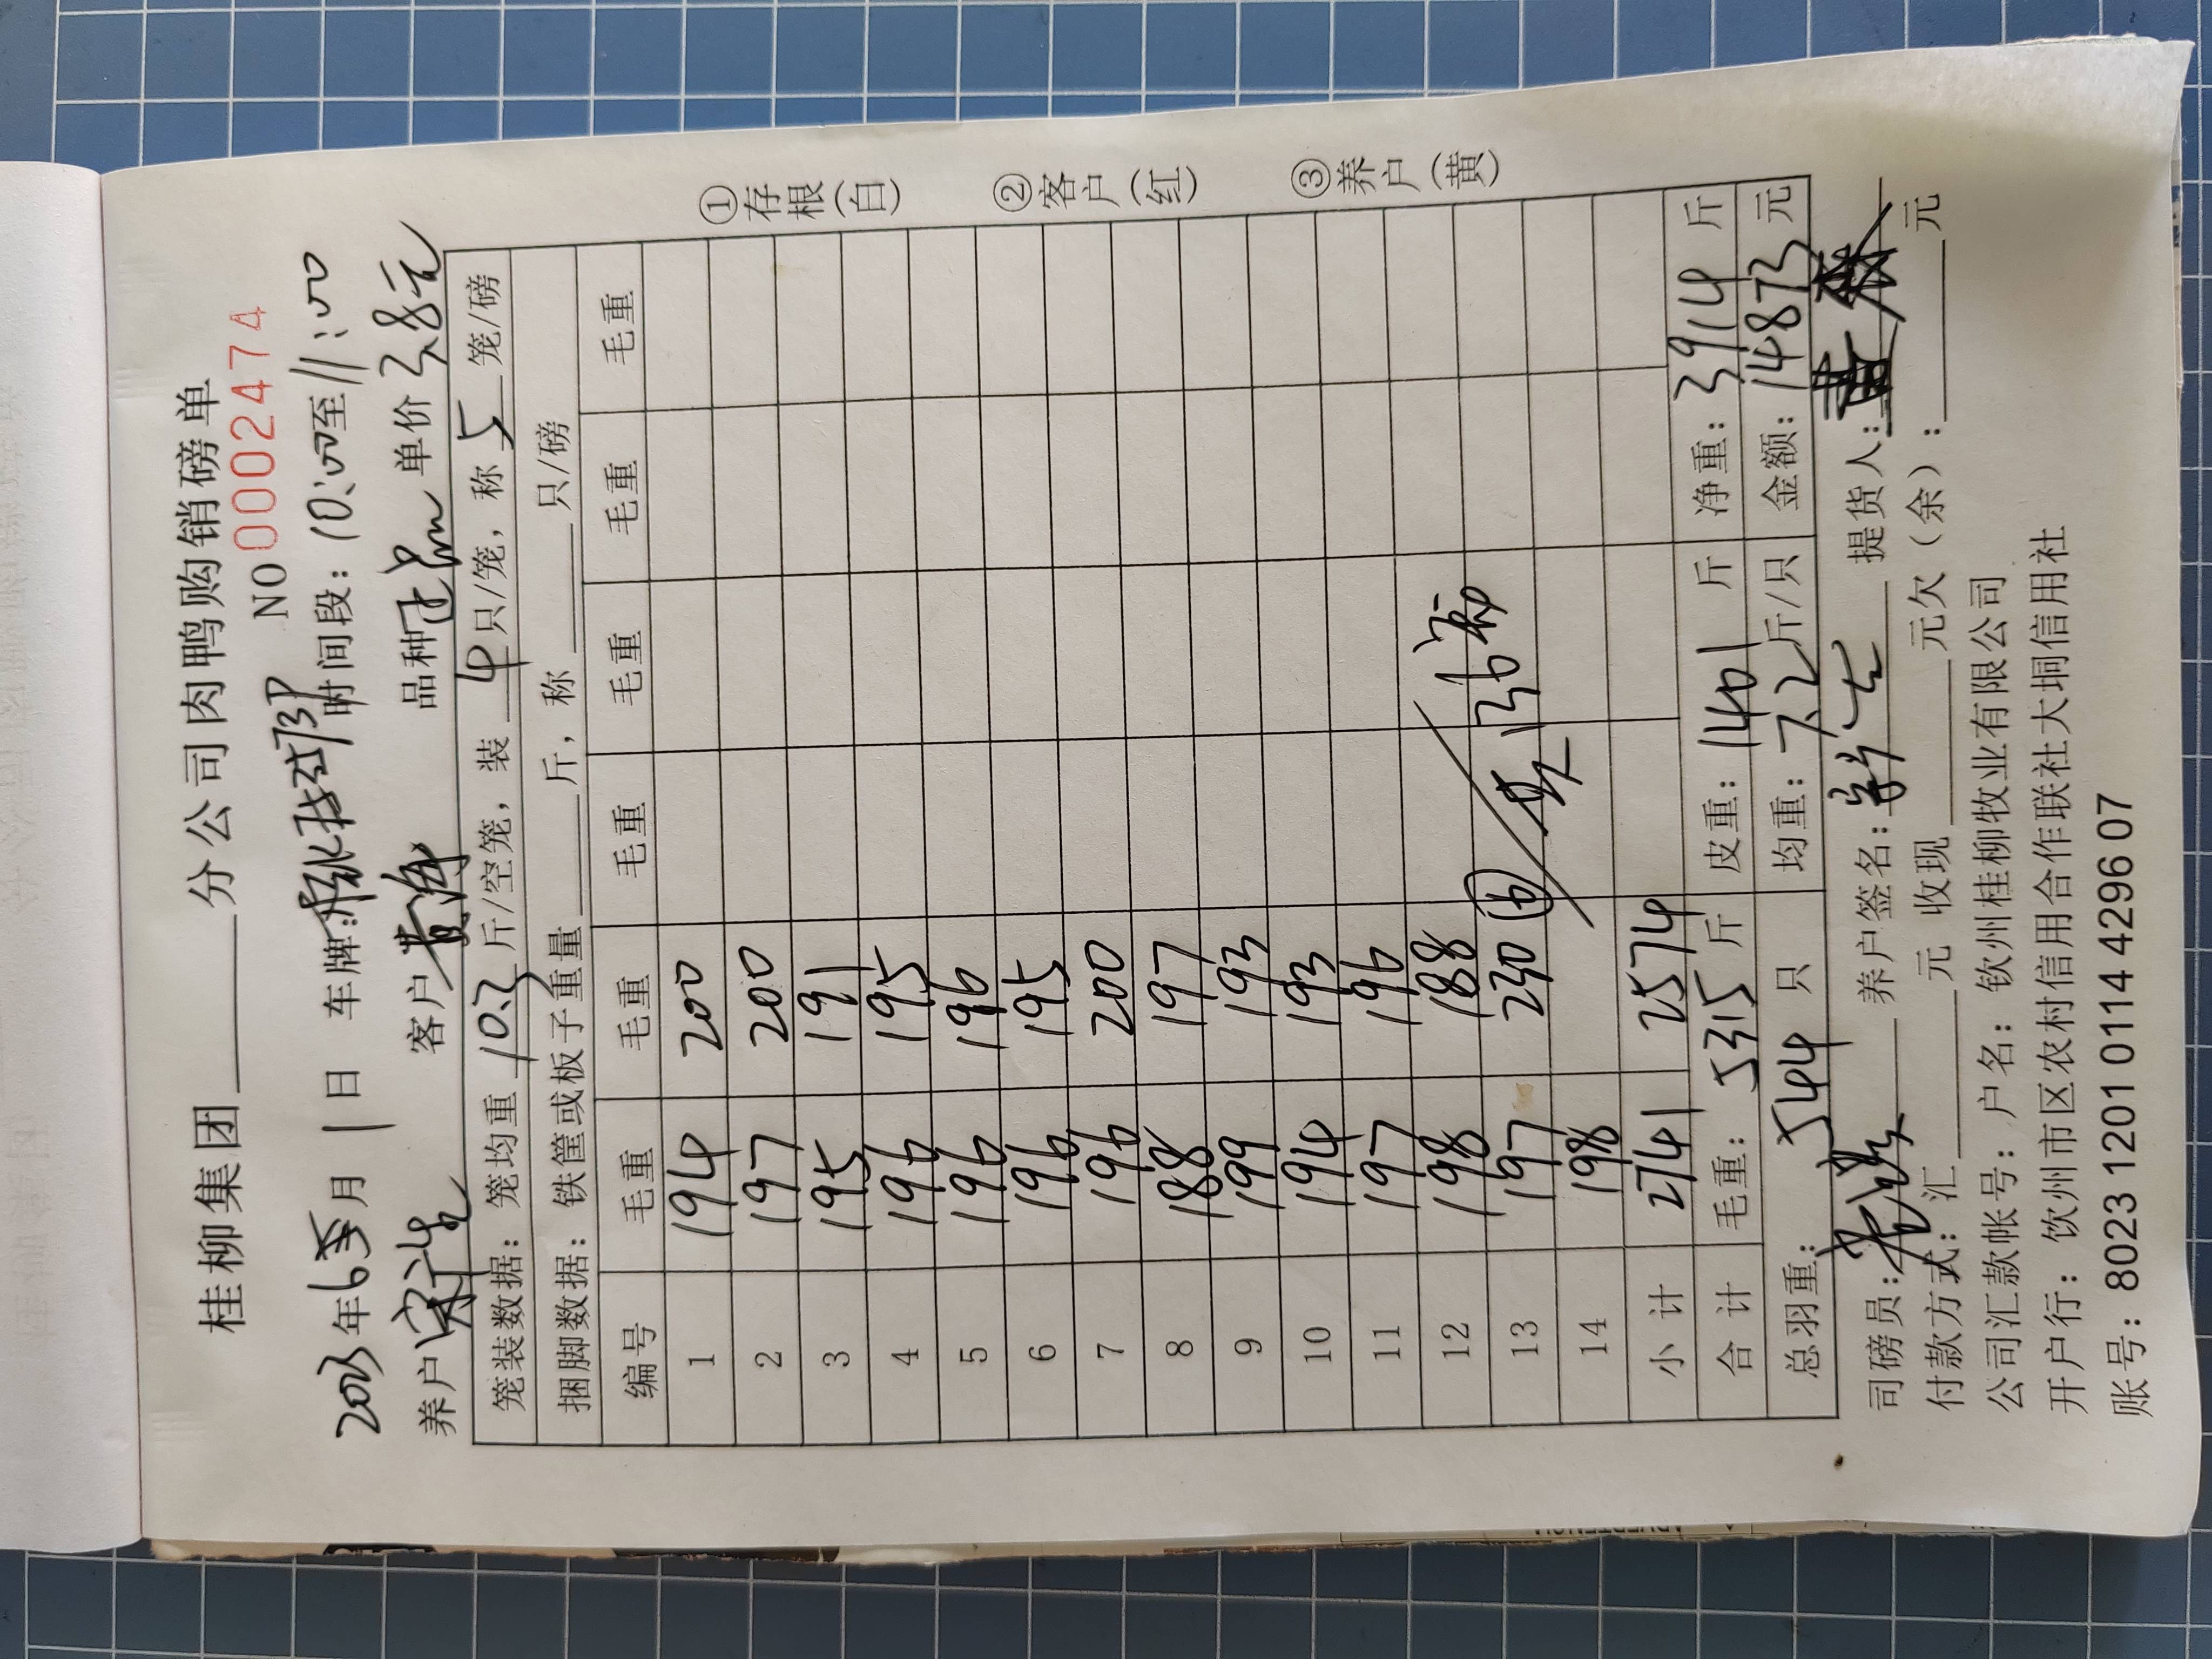 桂柳集团________分公司肉鸭购销磅单
NO 0002474
2023年6月1日 车牌: 时间段：10:00至11:00
养户 客户 黄海 品种 单价 3.8元
笼装数据：笼均重 10.3 斤/空笼，装 4 只/笼，称 5 笼/磅
捆脚数据：铁筐或板子重量______斤，称______只/磅
编号 毛重 毛重 毛重 毛重 毛重 毛重
1 194 200
2 197 200
3 195 191
4 196 195
5 196 196
6 196 195
7 196 200
8 188 197
9 199 193
10 194 193
11 197 196
12 198 188
13 197 230
14 198
小计 2741 2574
合计 毛重：5315 斤 皮重：1401 斤 净重：3914 斤
总羽重：544 只 均重：7.2 斤/只 金额：14873 元
司磅员: 养户签名: 提货人:
付款方式：汇______元 收现______元欠（余）：______元
公司汇款帐号：户名：钦州桂柳牧业有限公司
开户行：饮州市区农村信用合作联社大垌信用社
账号：8023 1201 0114 4296 07
①存根(白)
②客户(红)
③养户(黄)